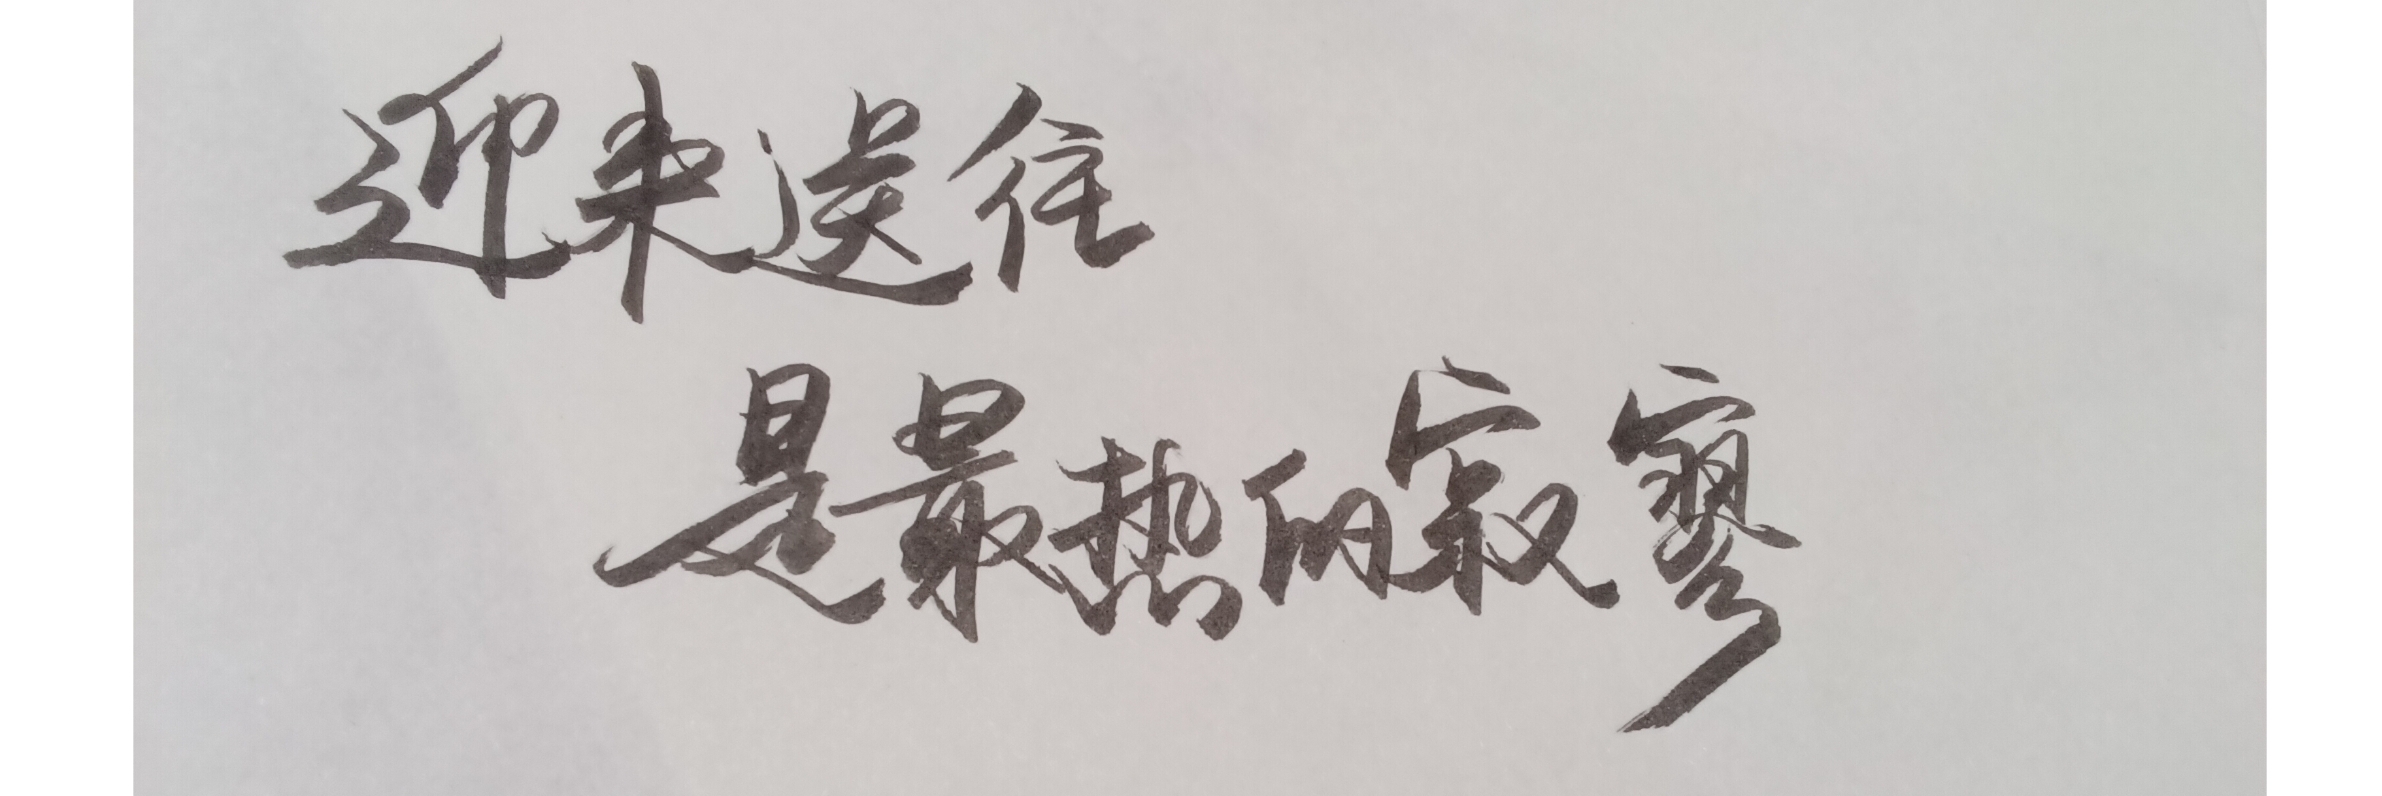 迎来送往
是最热的寂寥